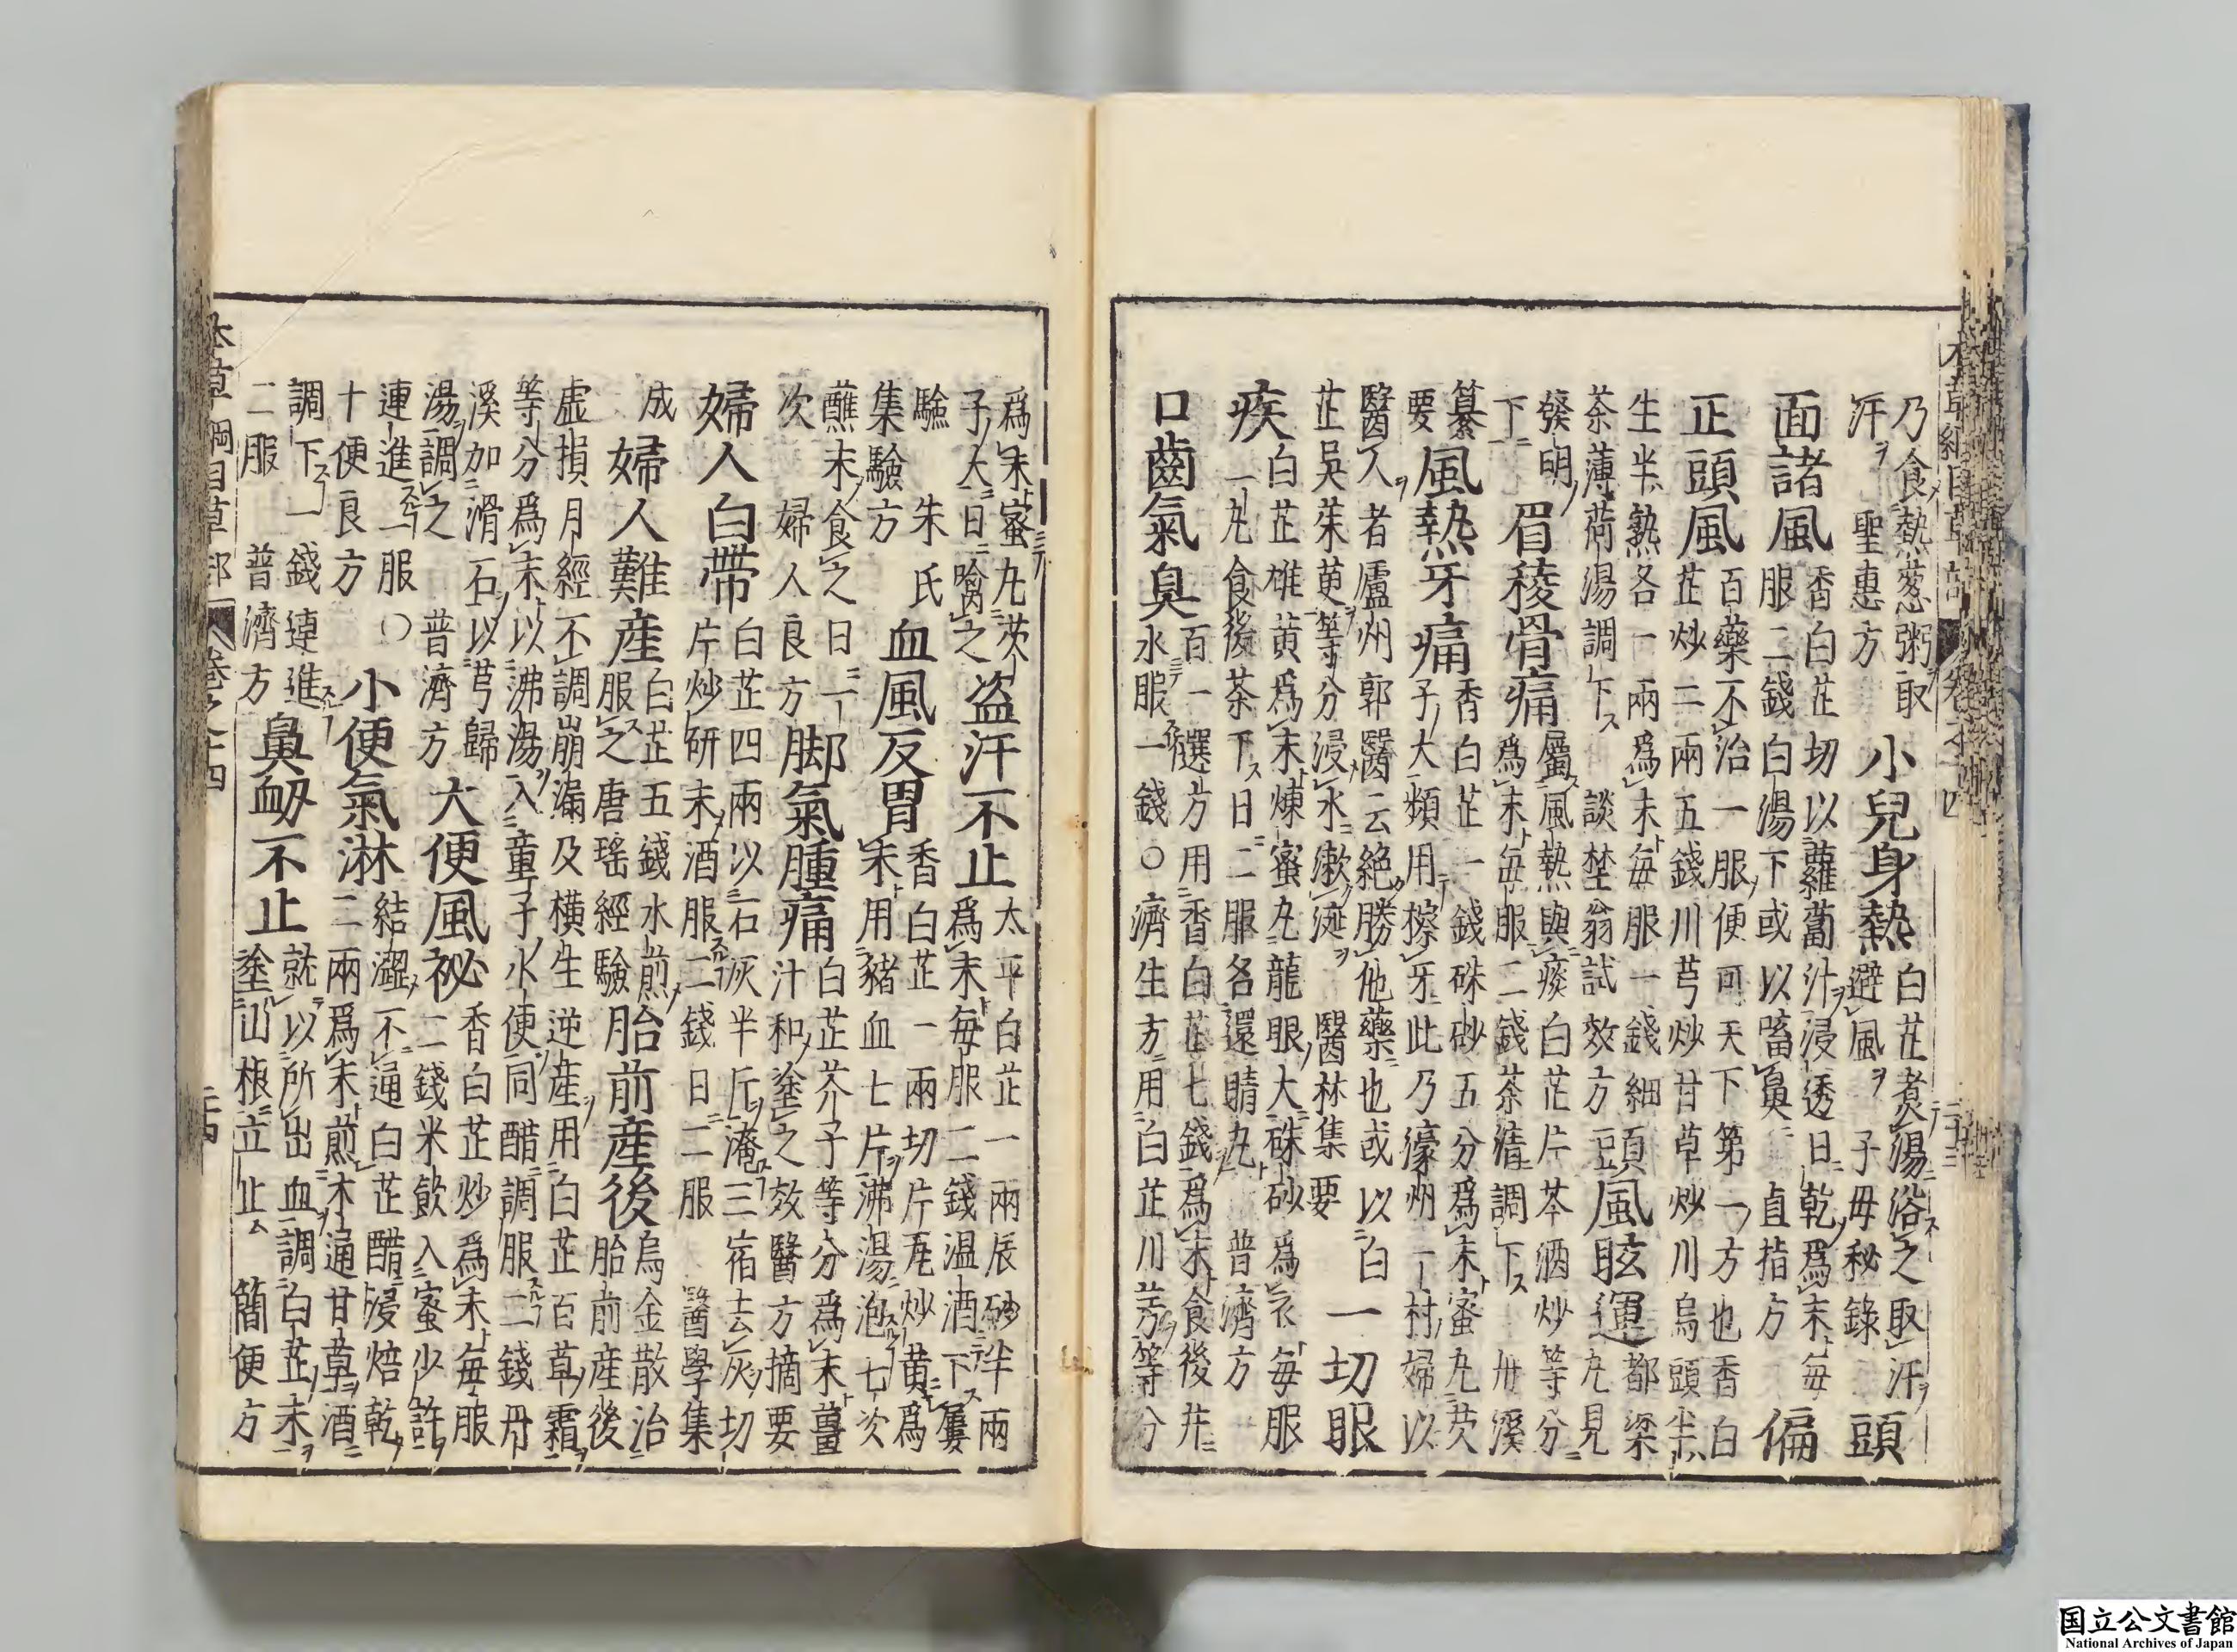 本草綱目草部 卷之十四 二十三
乃食熱葱粥取
汗 聖惠方
小兒身熱
白芷煮湯浴之取汗
避風 子母秘録
頭
面諸風
香白芷切以蘿蔔汁浸透日乾爲末毎
服二錢白湯下或以㗜鼻 直指方
偏
正頭風
百藥不治一服便可天下第一方也香白
芷炒二兩五錢川芎炒甘草炒川烏頭半
生半熟各一兩爲末毎服一錢細
茶薄荷湯調下 談埜翁試效方
頭風眩運
都梁
丸見
發明
下
眉稜骨痛
屬風熱與痰白芷片芩酒炒等分
爲末毎服二錢茶清調下 丹溪
纂
要
風熱牙痛
香白芷一錢硃砂五分爲末蜜丸芡
子大頻用擦牙此乃濠州一村婦以
醫人者廬州郭醫云絶勝他藥也或以白
芷吳茱萸等分浸水漱涎 醫林集要
一切眼
疾
白芷雄黄爲末煉蜜丸龍眼大硃砂爲衣毎服
一丸食後茶下日二服名還睛丸 普濟方
口齒氣臭
百一選方用香白芷七錢爲末食後井
水服一錢○濟生方用白芷川芎等分
爲末蜜丸芡
子大日噙之
盗汗不止
太平白芷一兩辰砂半兩
爲末毎服二錢温酒下屢
驗 朱氏
集驗方
血風反胃
香白芷一兩切片瓦炒黄爲
末用豬血七片沸湯泡七次
蘸末食之日一
次 婦人良方
脚氣腫痛
白芷芥子等分爲末薑
汁和塗之效醫方摘要
婦人白帶
白芷四兩以石灰半斤淹三宿去灰切
片炒研末酒服二錢日二服 醫學集
成
婦人難産
白芷五錢水煎
服之唐瑤經驗
胎前産後
烏金散治
胎前産後
虚損月經不調崩漏及横生逆産用白芷百草霜
等分爲末以沸湯入童子小便同醋調服二錢丹
溪加滑石以芎歸
湯調之 普濟方
大便風祕
香白芷炒爲末毎服
二錢米飲入蜜少許
連進二服○
十便良方
小便氣淋
結澀不通白芷醋浸焙乾
二兩爲末煎木通甘草酒
調下一錢連進
二服 普濟方
鼻衄不止
就以所出血調白芷末
塗山根立止 簡便方
本草綱目草部 卷之十四 二十四
国立公文書館
National Archives of Japan